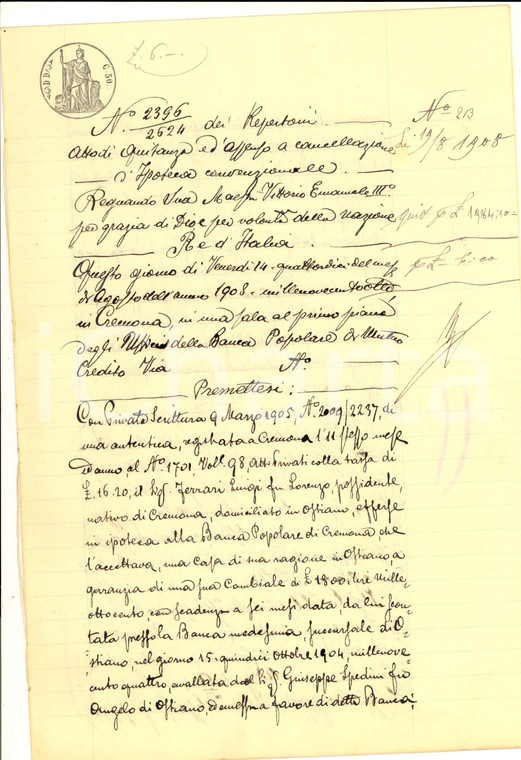 £ 6.—
C. 50
N.° 2396 / 2624 dei Repertorii
N.° 213
Atto di Quitanza ed' Assenso a cancellazione
li 19/8 1908
d'Ipoteca convenzionale.
Regnando Sua Maestà Vittorio Emanuele III°
per grazia di Dio e per volontà della Nazione
Re d'Italia.
Questo giorno di Venerdì 14 - quattordici del mese
di Agosto dell'anno 1908 - millenovecentootto
in Cremona, in una sala al primo piano
degli Uffici della Banca Popolare di Mutuo
Credito Via N.°
Premettesi:
Con Privata Scrittura 9 Marzo 1905, N.° 2009/2237, di
mia autentica, registrata a Cremona l'11 stesso mese
ed anno, al N.° 1701, Vol. 98, Atti Privati colla tassa di
£. 16.20, il Sig. Ferrari Luigi fu Lorenzo, possidente,
nativo di Cremona, domiciliato in Ostiano, offerse
in ipoteca alla Banca Popolare di Cremona che
l'accettava, una casa di sua ragione in Ostiano, a
garanzia di una sua Cambiale di £ 1800. lire mille-
ottocento, con scadenza a sei mesi data, da lui scon-
tata presso la Banca medesima, succursale di O-
stiano, nel giorno 15 - quindici Ottobre 1904, millenove-
cento quattro, avallata dal Sig. Giuseppe Spedini fu
Angelo di Ostiano, ed emessa a favore di detta Banca,